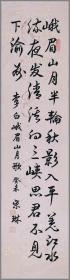 峨眉山月半輪秋影入平羌江水
流夜发清溪向三峡思君不見
下渝州
李白峨眉山月歌 癸未